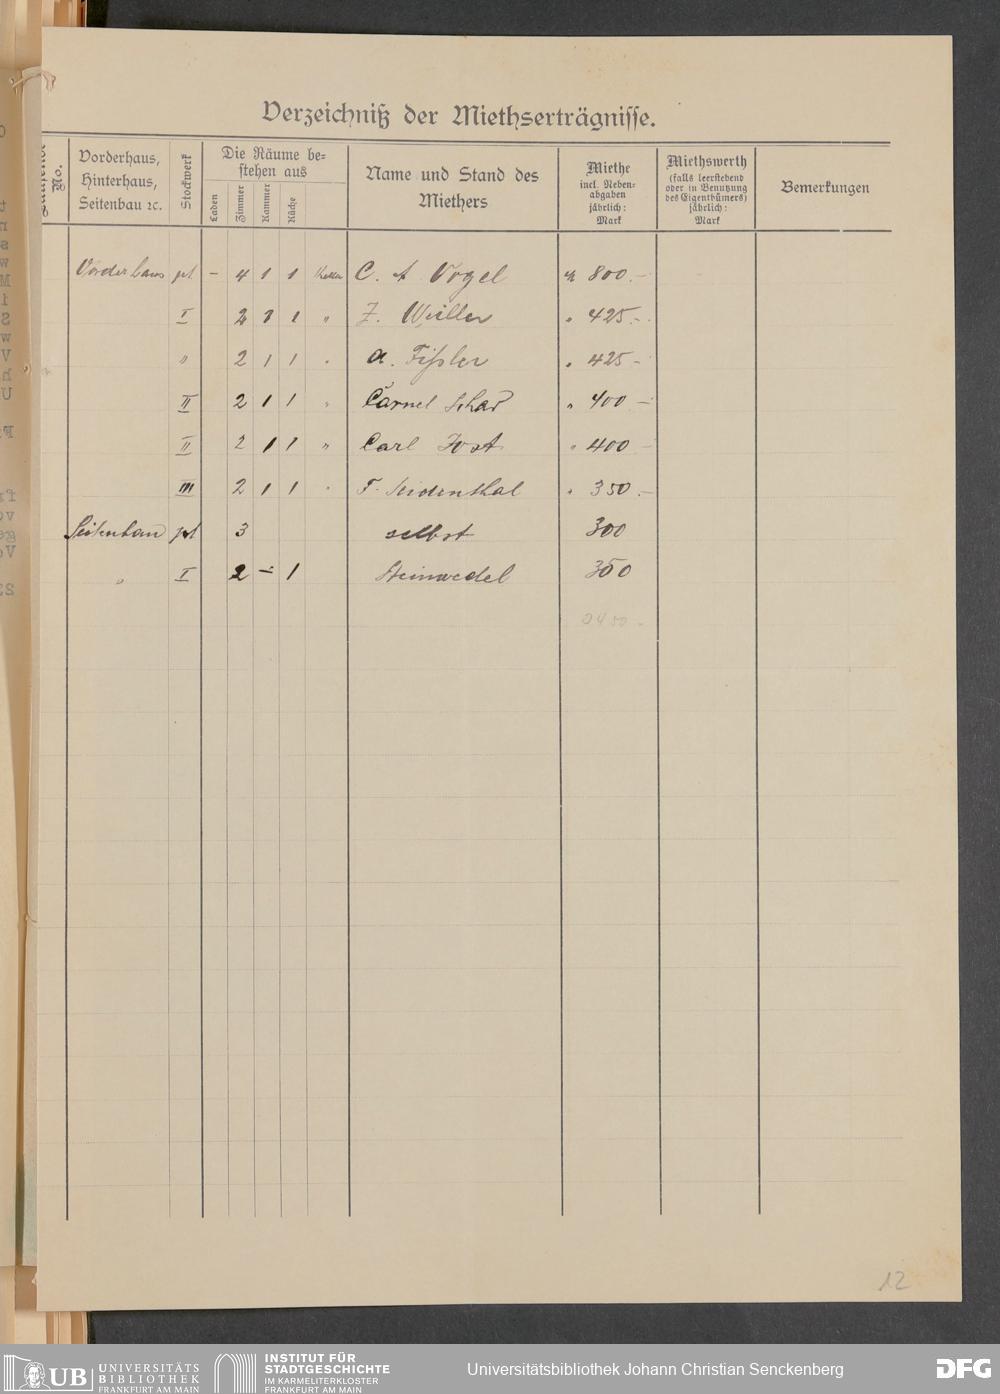 Verzeichniß der Miethserträgnisse.
No.
Vorderhaus,
Hinterhaus,
Seitenbau ꝛc.
Stockwerk
Die Räume be=
stehen aus
Laden
Zimmer
Kammer
Küche
Name und Stand des
Miethers
Miethe
incl. Neben=
abgaben
jährlich:
Mark
Miethswerth
(falls leerstehend
oder in Benutzung
des Eigenthümers)
jährlich:
Mark
Bemerkungen
Vorderhaus pt – 4 1 1 Keller C. A Vogel 800.–
I 2 1 1 " Weiller " 425.–
" 2 1 1 " A. Fißler " 425 –
II 2 1 1 " Carnel Schad " 400 –
II 2 1 1 " Carl Jost " 400 –
III 2 1 1 " F. Seidenthal " 350.–
Seitenbau pt 3 selbst 300
" I 2 – 1 Steinwedel 350
3450.–
12
UB UNIVERSITÄTS
BIBLIOTHEK
FRANKFURT AM MAIN
INSTITUT FÜR
STADTGESCHICHTE
IM KARMELITERKLOSTER
FRANKFURT AM MAIN
Universitätsbibliothek Johann Christian Senckenberg
DFG